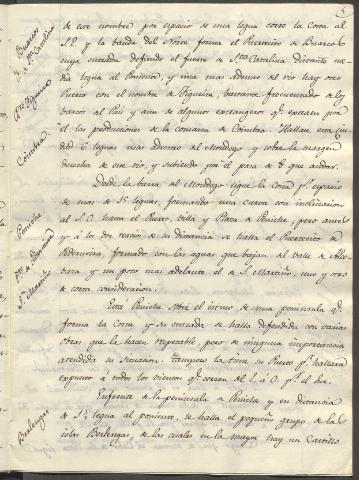 5
de este nombre por espacio de una legua corre la Costa al
S.E. y la banda del Norte forma el Puertecito de Buarcos
cuya entrada defiende el fuerte de Sta. Catalina distante me-
dia legua al Poniente, y una mas adentro del rio hay otro
Puerto con el nombre de Figueira, bastante frecuentado de los
barcos al Pais y aun de algunos extrangeros qe. extraen por
él las producciones de la comarca de Coimbra. Hallase esta ciu-
dad 6 leguas mas adentro del Mondego y sobre la margen
derecha de este rio, y subiendo por él para de
Desde la barra al Mondego sigue la Costa pr. espacio
de mas de leguas, formando una curva con inclinacion
al S.O. hasta el Puerto, Villa y Plaza de Peniche, pero antes
y á los dos tercios de su distancia se halla el Puertecito de
Pederneira, formado con las aguas que bajan del Valle de Alco-
baza y un poco mas adelante el de Sn. Martiño, uno y otro
de corta consideracion.
Está Peniche sobre el itsmo de una peninsula qe.
forma la Costa y su entrada se halla defendida con varias
obras que la hacen respetable, pero de ninguna importancia
atendida su situacion. Tampoco la tiene su Puerto pr. hallarse
expuesto á todos los vientos qe. corren del E. á O. pr. el Sur.
Enfrente de la peninsula de Peniche y en distancia
de legua al poniente, se halla el pequeño grupo de las
islas Berlengas, de las cuales en la mayor hay un Castillo
Buarcos
y Sta. Catalina
Figueira
Coimbra
Peniche
Pto. de Pederneira
Sn. Martiño
Berlengas